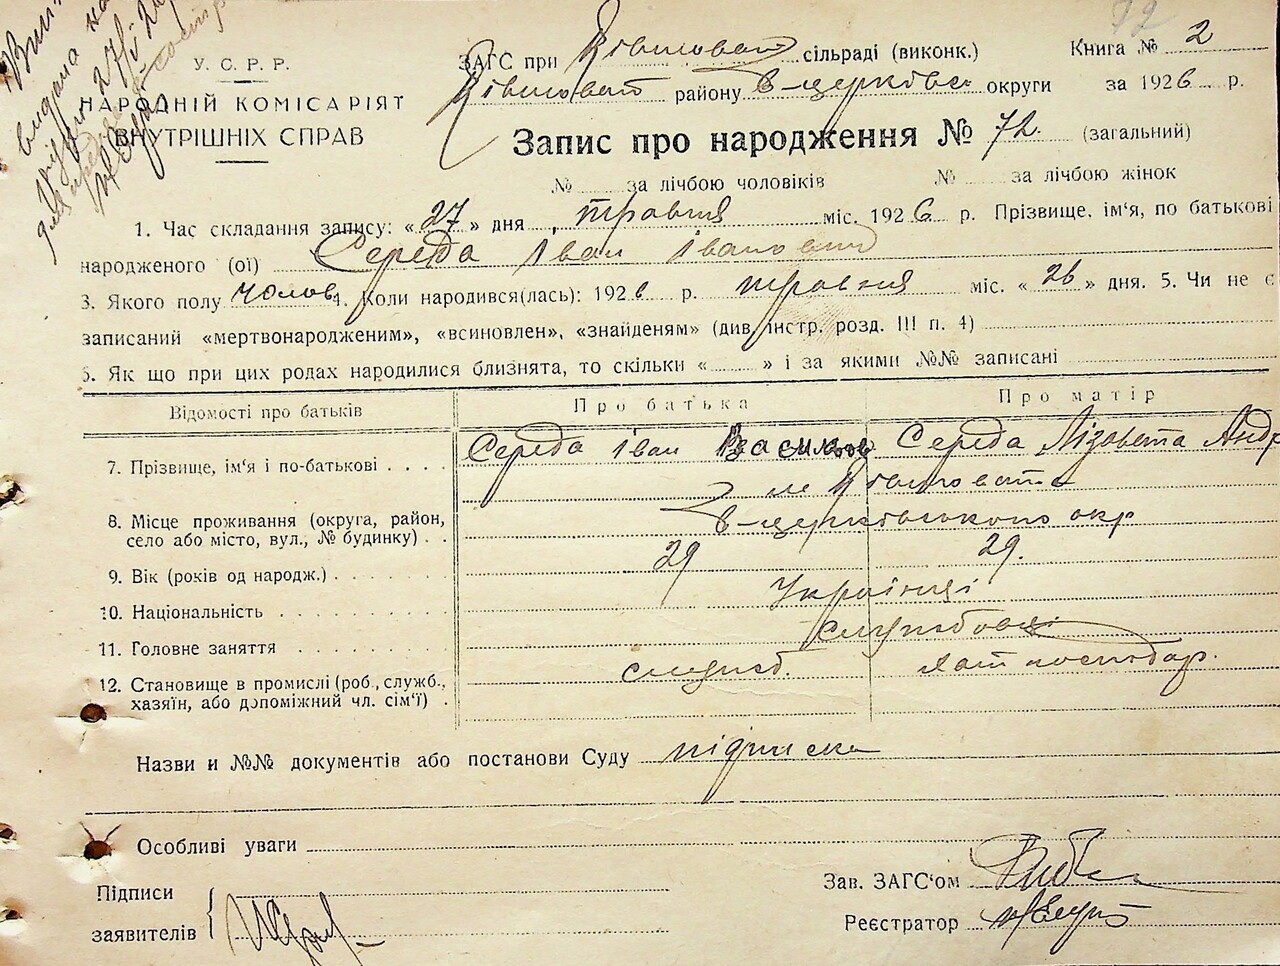 72
У. С. Р. Р.
НАРОДНІЙ КОМІСАРІЯТ
ВНУТРІШНІХ СПРАВ
ЗАГС при сільраді (виконк.) Книга № 2
району Б-церківс округи за 1926 р.
Запис про народження № 72. (загальний)
№ за лічбою чоловіків № за лічбою жінок
1. Час складання запису: «27» дня травня міс. 1926 р. Прізвище, ім'я, по батькові
народженого (ої) Середа Іван Іванович
3. Якого полу чолов 4. Коли народився(лась): 1926 р. травня міс. «26» дня. 5. Чи не є
записаний «мертвонародженим», «всиновлен», «знайденям» (див. інстр. розд. III п. 4)
6. Як що при цих родах народилися близнята, то скільки « » і за якими №№ записані
Відомості про батьків Про батька Про матір
7. Прізвище, ім'я і по-батькові . . . . Середа Іван Васильов Середа Лізовета Андр
8. Місце проживання (округа, район,
село або місто, вул., № будинку) . . Б-церківського окр
9. Вік (років од народж.) 29 29.
10. Національність Українці
11. Головне заняття службовці
12. Становище в промислі (роб., служб., служб. господар.
хазяїн, або допоміжний чл. сім'ї) .
Назви и №№ документів або постанови Суду підписка
Особливі уваги
Підписи
заявителів
Зав. ЗАГС'ом
Реєстратор